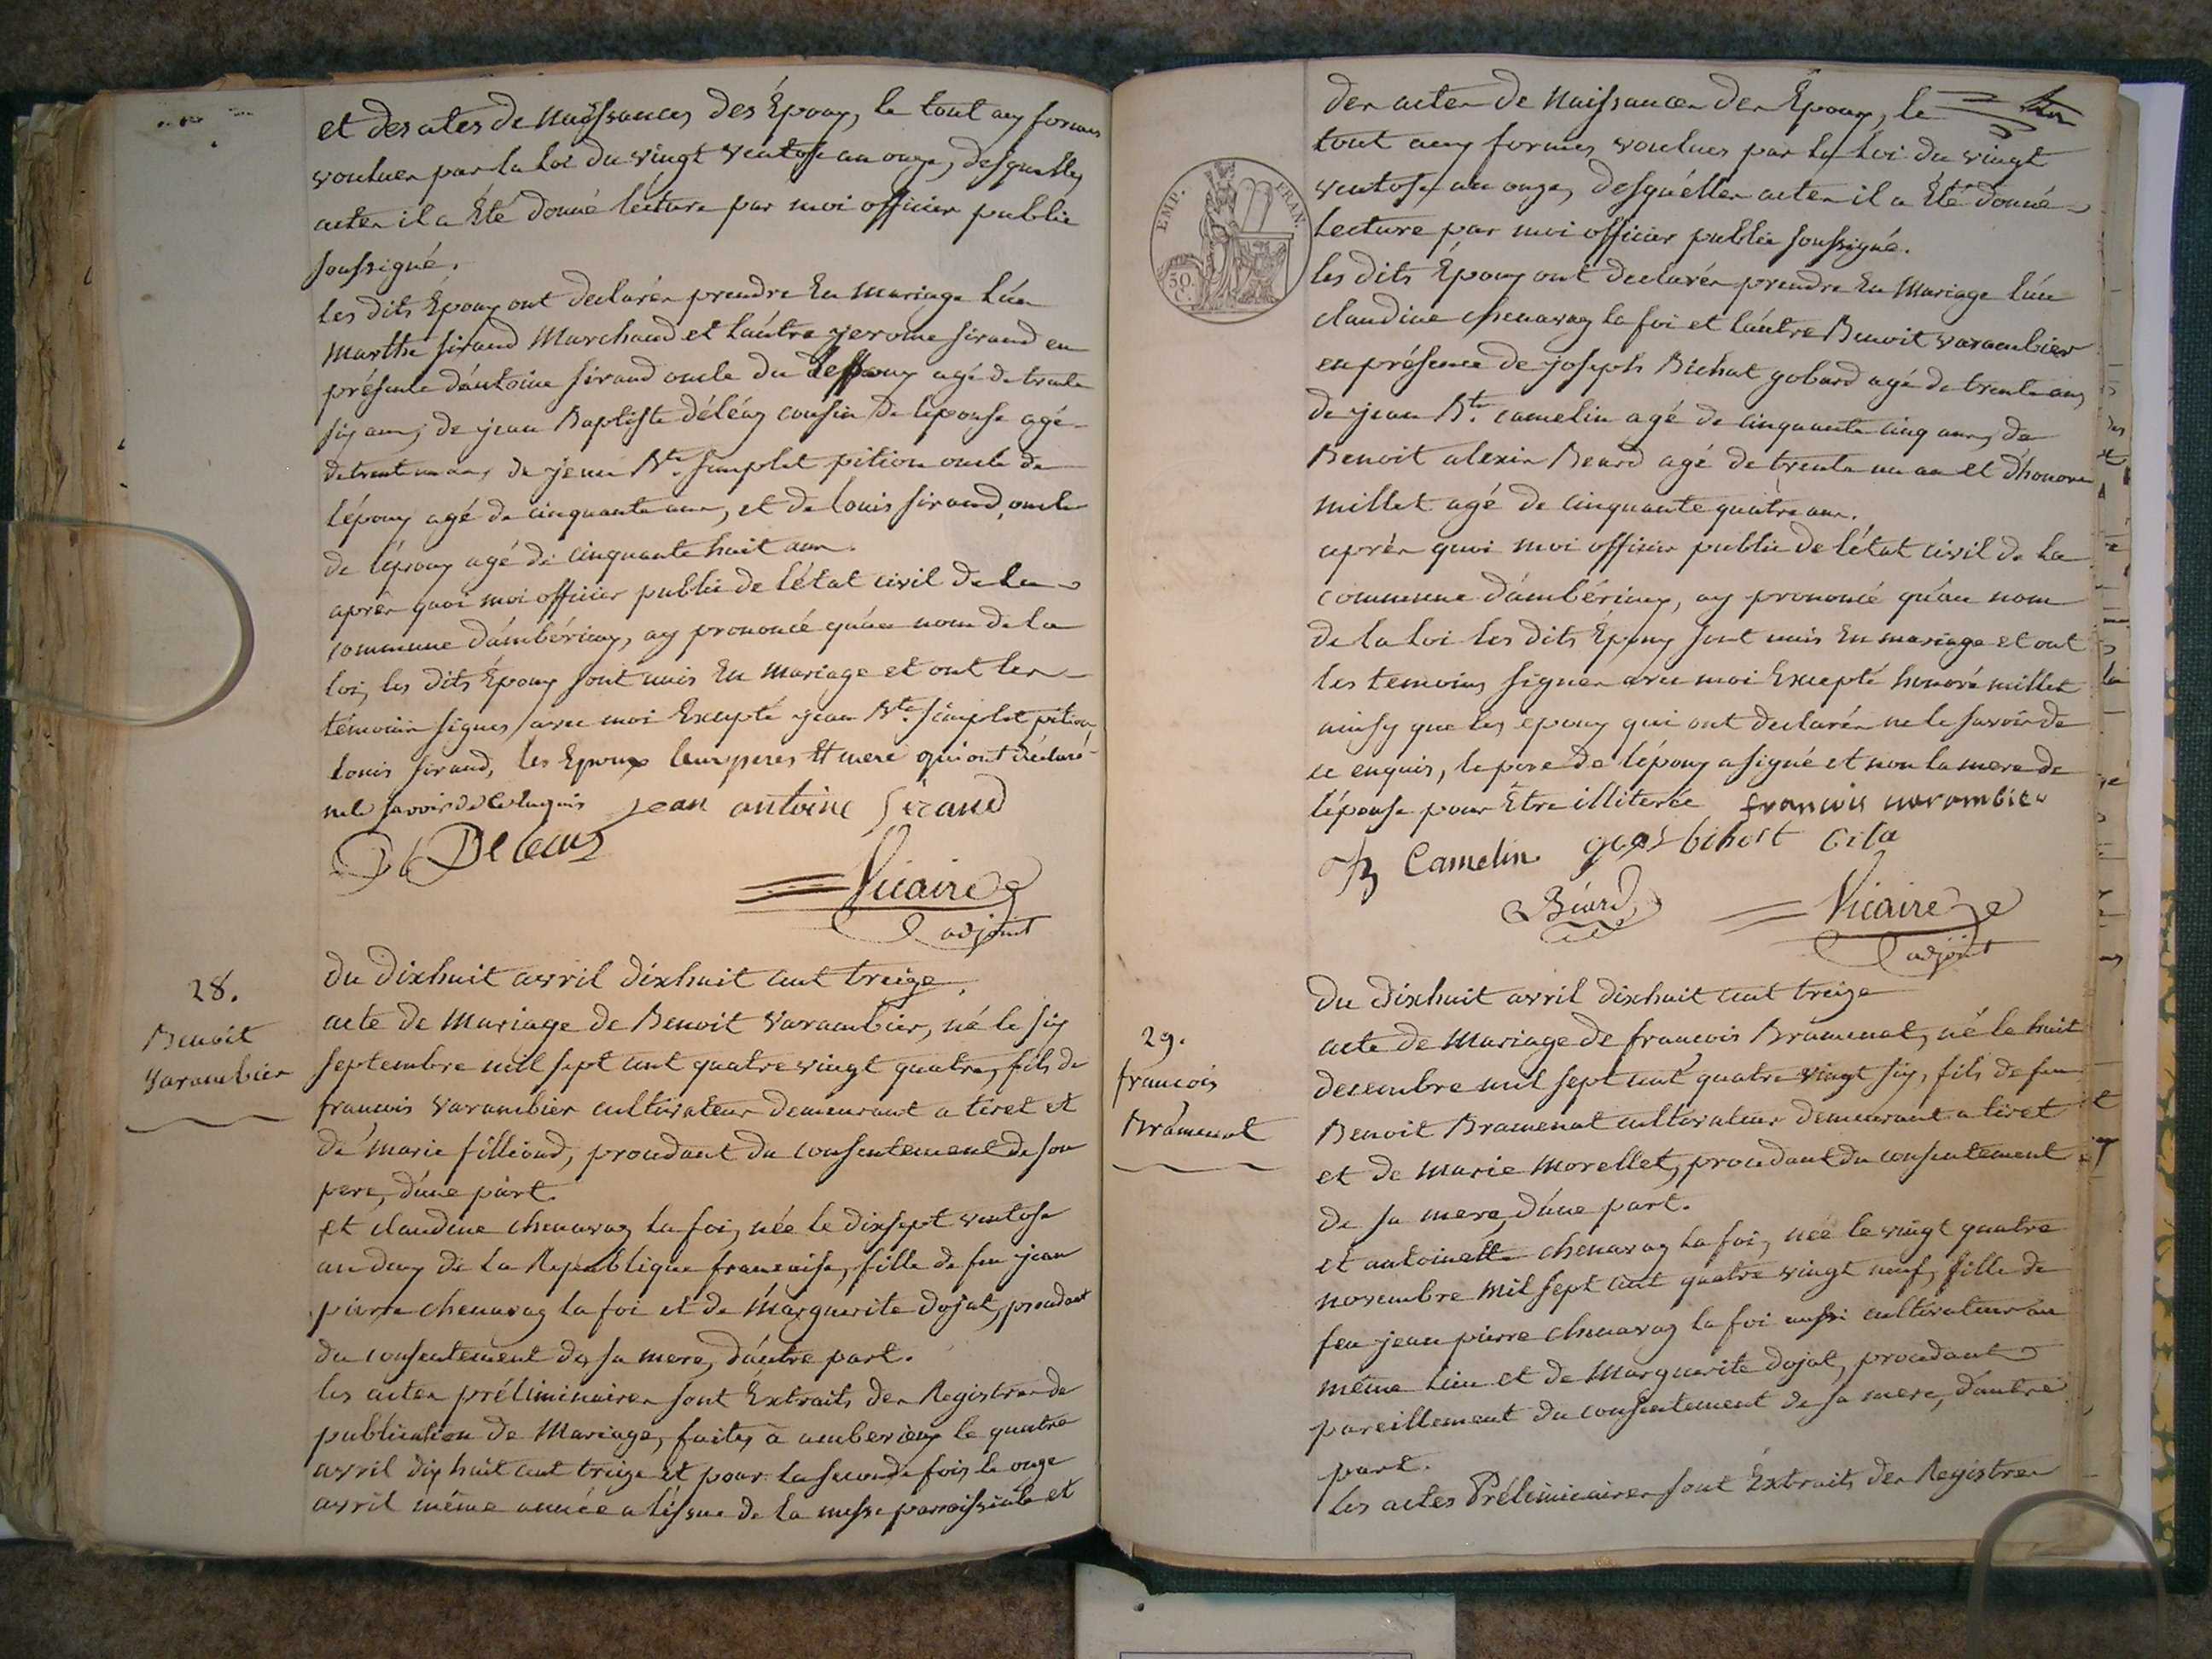 et des actes de naissances des Époux, le tout aux formes
voulues par la Loi du vingt ventose an onze, desquelles
actes il a Été donné lecture par moi officier public
soussigné.
les dits Époux ont declarés prendre En mariage l'un
marthe siraud Marchand et l'autre jerome siraud en
présence d'antoine siraud oncle de agé de trente
six ans, de jean Baptiste déléaz cousin de l'epouse agé
de trent un ans, de jean Bte. simplet pition oncle de
l'époux agé de cinquante ans, et de louis siraud, oncle
de l'époux agé de cinquante huit ans.
après quoi moi officier public de l'état civil de la
commune d'ambérieux, ay prononcé qu'au nom de la
loi, les dits Époux sont unis En mariage et ont les
témoins signes avec moi Excepté jean Bte. simplet pition,
louis siraud, les Epoux leurs peres Et mere qui ont déclaré
ne le savoir de ce Enquis jean antoine siraud
Vicaire
adjoint
28.
Benoit
Varambier
Du dixhuit avril dixhuit cent treize,
acte de mariage de Benoit Varambier, né le six
septembre mil sept cent quatre vingt quatre, fils de
francois varambier cultivateur demeurant a tiret et
de marie filliond, procédant du consentement de son
pere, d'une part.
et claudine chenavaz la foi, née le dixsept ventose
an deux de la Republique francaise, fille de feu jean
pierre chenavaz la foi et de marguerite dojat, procedant
du consentement de sa mere, d'autre part.
les actes préliminaires sont Extraits des Registres de
publication de Mariage, faites à amberieux le quatre
avril dix huit cent treize et pour la seconde fois le onze
avril même année a l'issue de la messe parroissiale et
des actes de Naissances des Époux, le
tout aux formes voulues par la Loi du vingt
ventose an onze, desquelles actes il a Été donné
Lecture par moi officier public soussigné.
EMP. FRAN.
50. C.
les dits Époux ont declarés prendre En Mariage l'un
claudine chenavaz la foi et l'autre Benoit varambier
en présence de joseph Bichat gobard agé de trente ans,
de jean Bte. camelin agé de cinquante cinq ans, de
Benoit alexis Beard agé de trente un an et d'honoré
millet agé de cinquante quatre ans.
après quoi moi officier public de l'état civil de la
commune d'ambérieux, ay prononcé qu'au nom
de la Loi les dits Époux sont unis En mariage et ont
les temoins signer avec moi Excepté honoré millet
ainsy que les epoux qui ont declarés ne le savoir de
ce enquis, le pere de l'époux a signé et non la mere de
l'épouse pour Être illiterée francois varambier
Camelin
Béard
Vicaire
adjoint
29.
francois
Bramenat
Du dixhuit avril dixhuit cent treize
acte de Mariage de francois Bramenat, né le huit
decembre mil sept cent quatre vingt six, fils de feu
Benoit Bramenat cultivateur demeurant a tiret
et de marie Morellet, procedant du consentement
de sa mere, d'une part.
et antoinette chenavaz la foi, née le vingt quatre
novembre mil sept cent quatre vingt neuf, fille de
feu jean pierre chenavaz la foi aussi cultivateur au
même lieu et de Marguerite dojat, procedant
pareillement du consentement de sa mere, d'autre
part.
Les actes Préliminaires sont Extraits des Registres